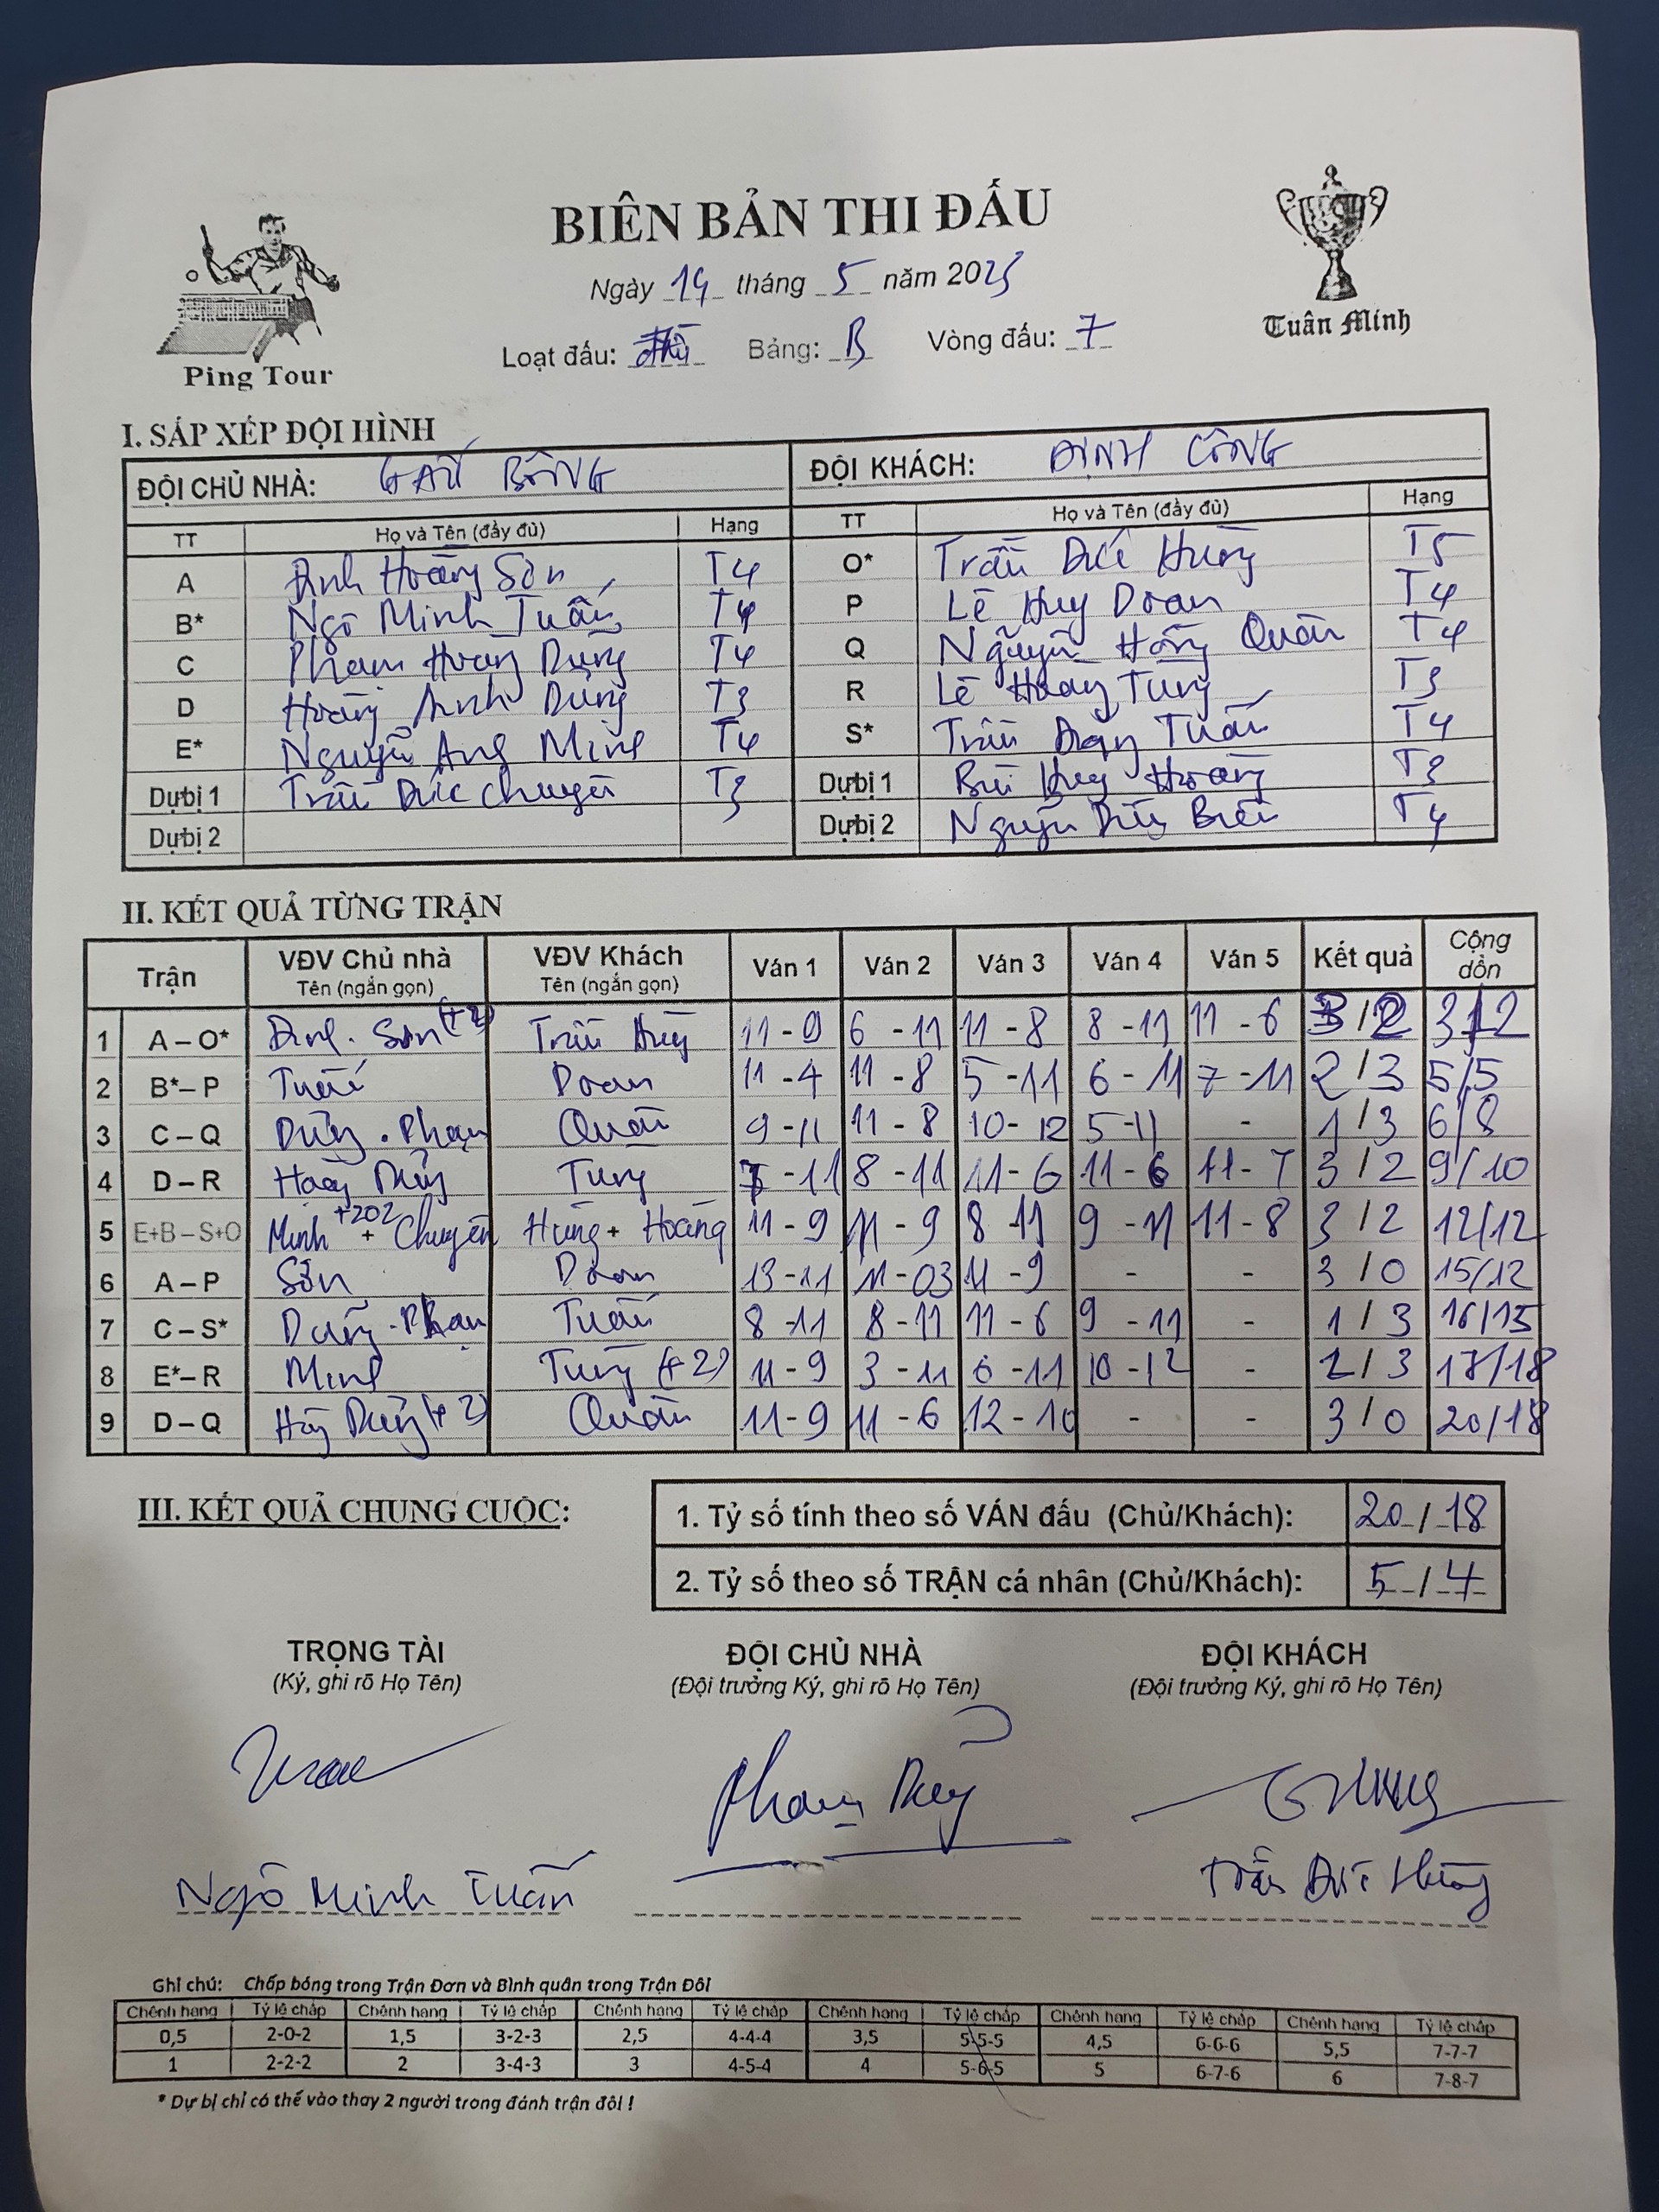 BIÊN BẢN THI ĐẤU
Ngày 14 tháng 5 năm 2023
Loạt đấu: Bảng: B Vòng đấu: 7
Ping Tour
Tuân Minh
I. SẮP XẾP ĐỘI HÌNH
ĐỘI CHỦ NHÀ: GẤU BÔNG ĐỘI KHÁCH: ĐỊNH CÔNG
TT Họ và Tên (đầy đủ) Hạng TT Họ và Tên (đầy đủ) Hạng
A Đinh Hoàng Sơn T4 O* Trần Đức Hùng T5
B* Ngô Minh Tuấn T4 P Lê Huy Doan T4
C Phạm Hoàng Dũng T4 Q Nguyễn Hồng Quân T4
D Hoàng Anh Dũng T3 R Lê Hoàng Tùng T3
E* Nguyễn Ang Minh T4 S* Trần Tuấn T4
Dự bị 1 Trần Đức Chuyên T3 Dự bị 1 Bùi Huy Hoàng T3
Dự bị 2 Dự bị 2 Nguyễn T4
II. KẾT QUẢ TỪNG TRẬN
Trận VĐV Chủ nhà Tên (ngắn gọn) VĐV Khách Tên (ngắn gọn) Ván 1 Ván 2 Ván 3 Ván 4 Ván 5 Kết quả Cộng dồn
1 A – O* Đinh. Sơn (+2) Trần Hùng 11 - 9 6 - 11 11 - 8 8 - 11 11 - 6 3 / 2 3/2
2 B* – P Tuấn Doan 11 - 4 11 - 8 5 - 11 6 - 11 7 - 11 2 / 3 5/5
3 C – Q Dũng . Phạm Quân 9 - 11 11 - 8 10 - 12 5 - 11 - 1 / 3 6/8
4 D – R Hoàng Dũng Tùng 7 - 11 8 - 11 11 - 6 11 - 6 11 - 7 3 / 2 9/10
5 E+B – S+O Minh +202 + Chuyên Hùng + Hoàng 11 - 9 11 - 9 8 - 11 9 - 11 11 - 8 3 / 2 12/12
6 A – P Sơn Doan 13 - 11 11 - 03 11 - 9 - - 3 / 0 15/12
7 C – S* Dũng - Phạm Tuấn 8 - 11 8 - 11 11 - 6 9 - 11 - 1 / 3 16/15
8 E* – R Minh Tùng (+2) 11 - 9 3 - 11 6 - 11 10 - 12 - 1 / 3 17/18
9 D – Q Dũng (+2) Quân 11 - 9 11 - 6 12 - 10 - - 3 / 0 20/18
III. KẾT QUẢ CHUNG CUỘC:
1. Tỷ số tính theo số VÁN đấu (Chủ/Khách): 20 / 18
2. Tỷ số theo số TRẬN cá nhân (Chủ/Khách): 5 / 4
TRỌNG TÀI ĐỘI CHỦ NHÀ ĐỘI KHÁCH
(Ký, ghi rõ Họ Tên) (Đội trưởng Ký, ghi rõ Họ Tên) (Đội trưởng Ký, ghi rõ Họ Tên)
Phạm Dũng
Ngô Minh Tuấn Trần Đức Hùng
Ghi chú: Chấp bóng trong Trận Đơn và Bình quân trong Trận Đôi
Chênh hạng Tỷ lệ chấp Chênh hạng Tỷ lệ chấp Chênh hạng Tỷ lệ chấp Chênh hạng Tỷ lệ chấp Chênh hạng Tỷ lệ chấp Chênh hạng Tỷ lệ chấp
0,5 2-0-2 1,5 3-2-3 2,5 4-4-4 3,5 5-5-5 4,5 6-6-6 5,5 7-7-7
1 2-2-2 2 3-4-3 3 4-5-4 4 5-6-5 5 6-7-6 6 7-8-7
* Dự bị chỉ có thể vào thay 2 người trong đánh trận đôi !